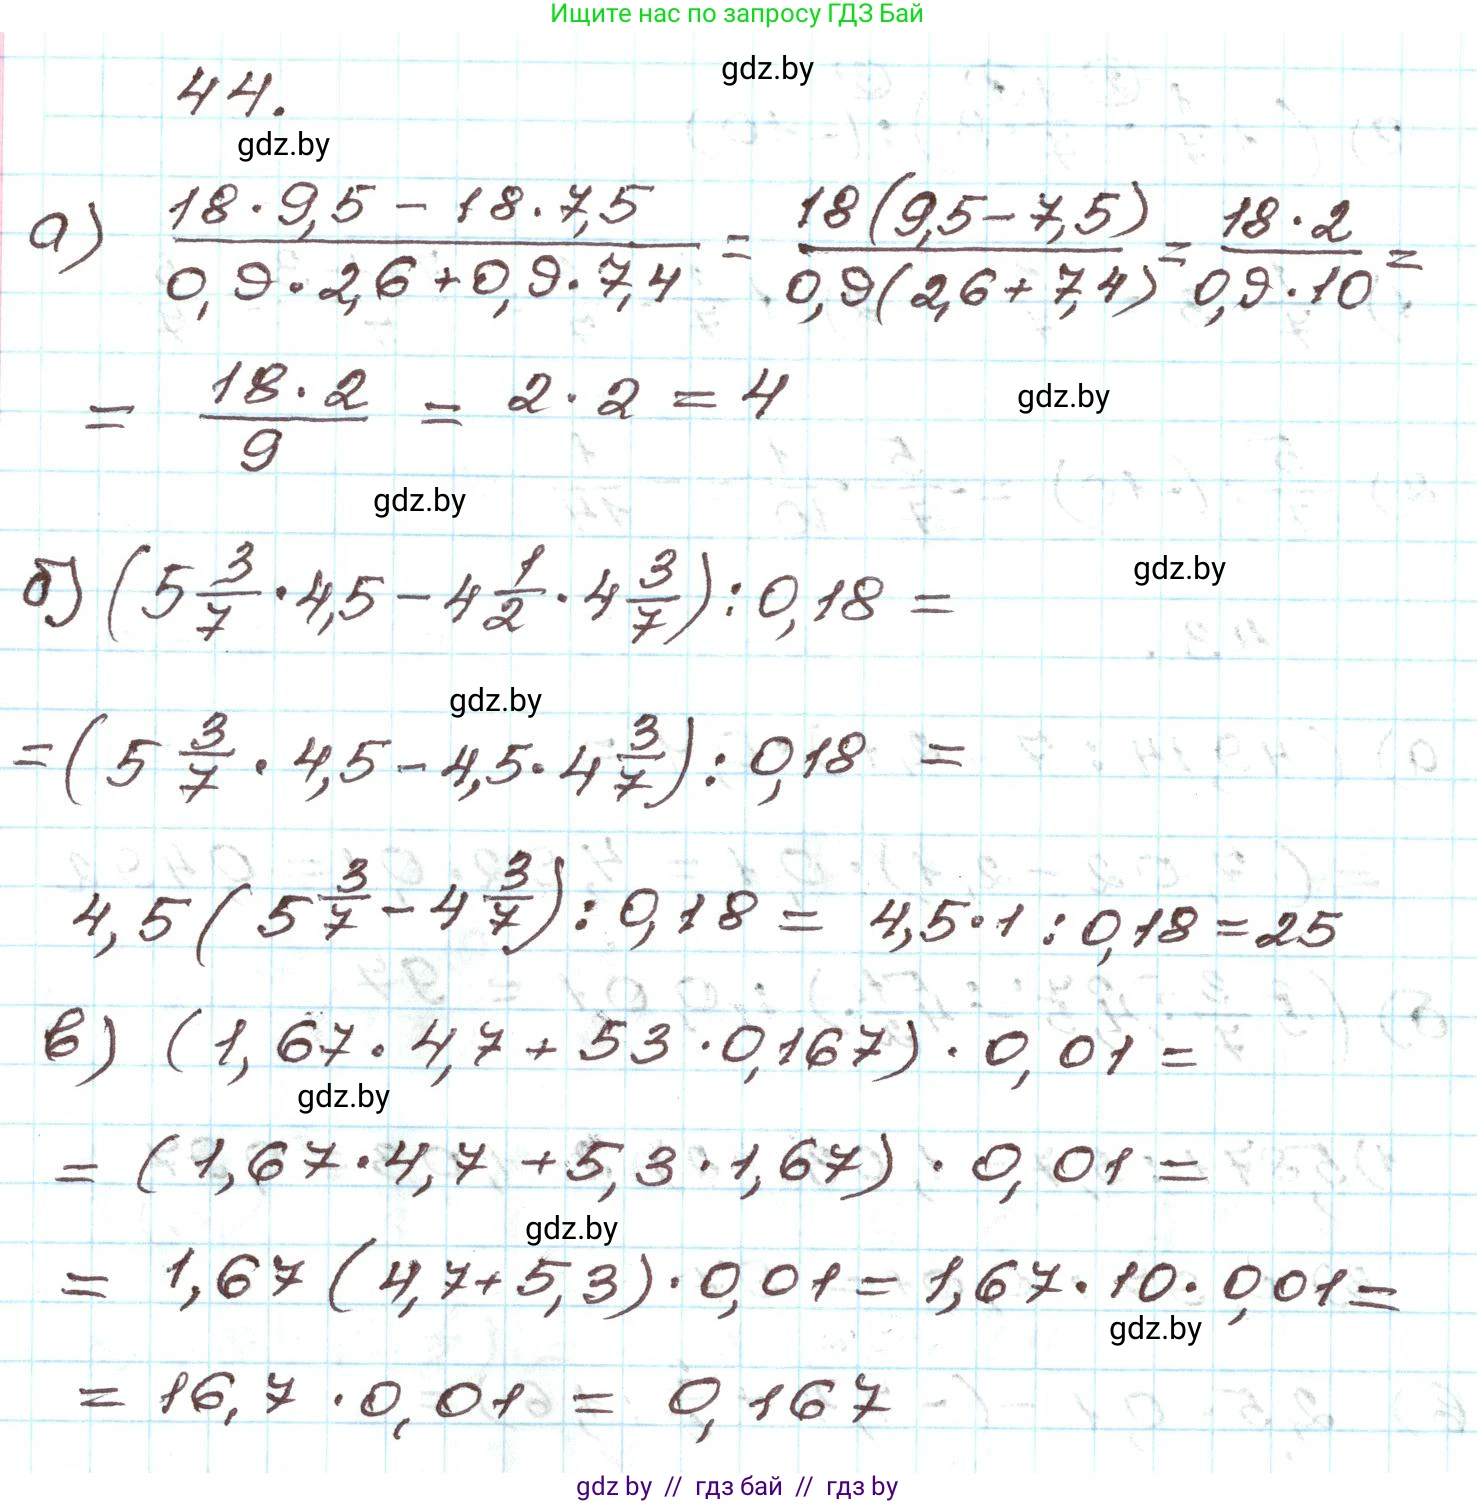 Ищите нас по запросу ГДЗ Бай
44.
gdz.by
gdz.by
а) (18·9,5 − 18·7,5)/(0,9·2,6+0,9·7,4) = 18(9,5−7,5)/0,9(2,6+7,4) = 18·2/0,9·10 =
= 18·2/9 = 2·2 = 4
gdz.by
gdz.by
б) (5 3/7 · 4,5 − 4 1/2 · 4 3/7) : 0,18 =
gdz.by
gdz.by
= (5 3/7 · 4,5 − 4,5 · 4 3/7) : 0,18 =
4,5 (5 3/7 − 4 3/7) : 0,18 = 4,5·1 : 0,18 = 25
в) (1,67·4,7 + 53·0,167) · 0,01 =
gdz.by
= (1,67·4,7 + 5,3·1,67) · 0,01 =
gdz.by
= 1,67 (4,7+5,3) · 0,01 = 1,67·10·0,01 =
gdz.by
= 16,7 · 0,01 = 0,167
gdz by // гдз бай // гдз by